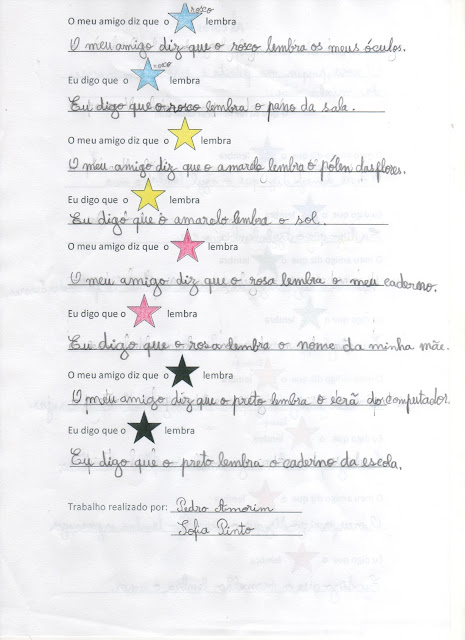 roxo
O meu amigo diz que o lembra
O meu amigo diz que o roxo lembra os meus óculos.
roxo
Eu digo que o lembra
Eu digo que o roxo lembra o pano da sala.
O meu amigo diz que o lembra
O meu amigo diz que o amarelo lembra o pólen das flores.
Eu digo que o lembra
Eu digo que o amarelo lembra o sol.
O meu amigo diz que o lembra
O meu amigo diz que o rosa lembra o meu caderno.
Eu digo que o lembra
Eu digo que o rosa lembra o nome da minha mãe.
O meu amigo diz que o lembra
O meu amigo diz que o preto lembra o ecrã do computador.
Eu digo que o lembra
Eu digo que o preto lembra o caderno da escola.
Trabalho realizado por: Pedro Amorim
Sofia Pinto